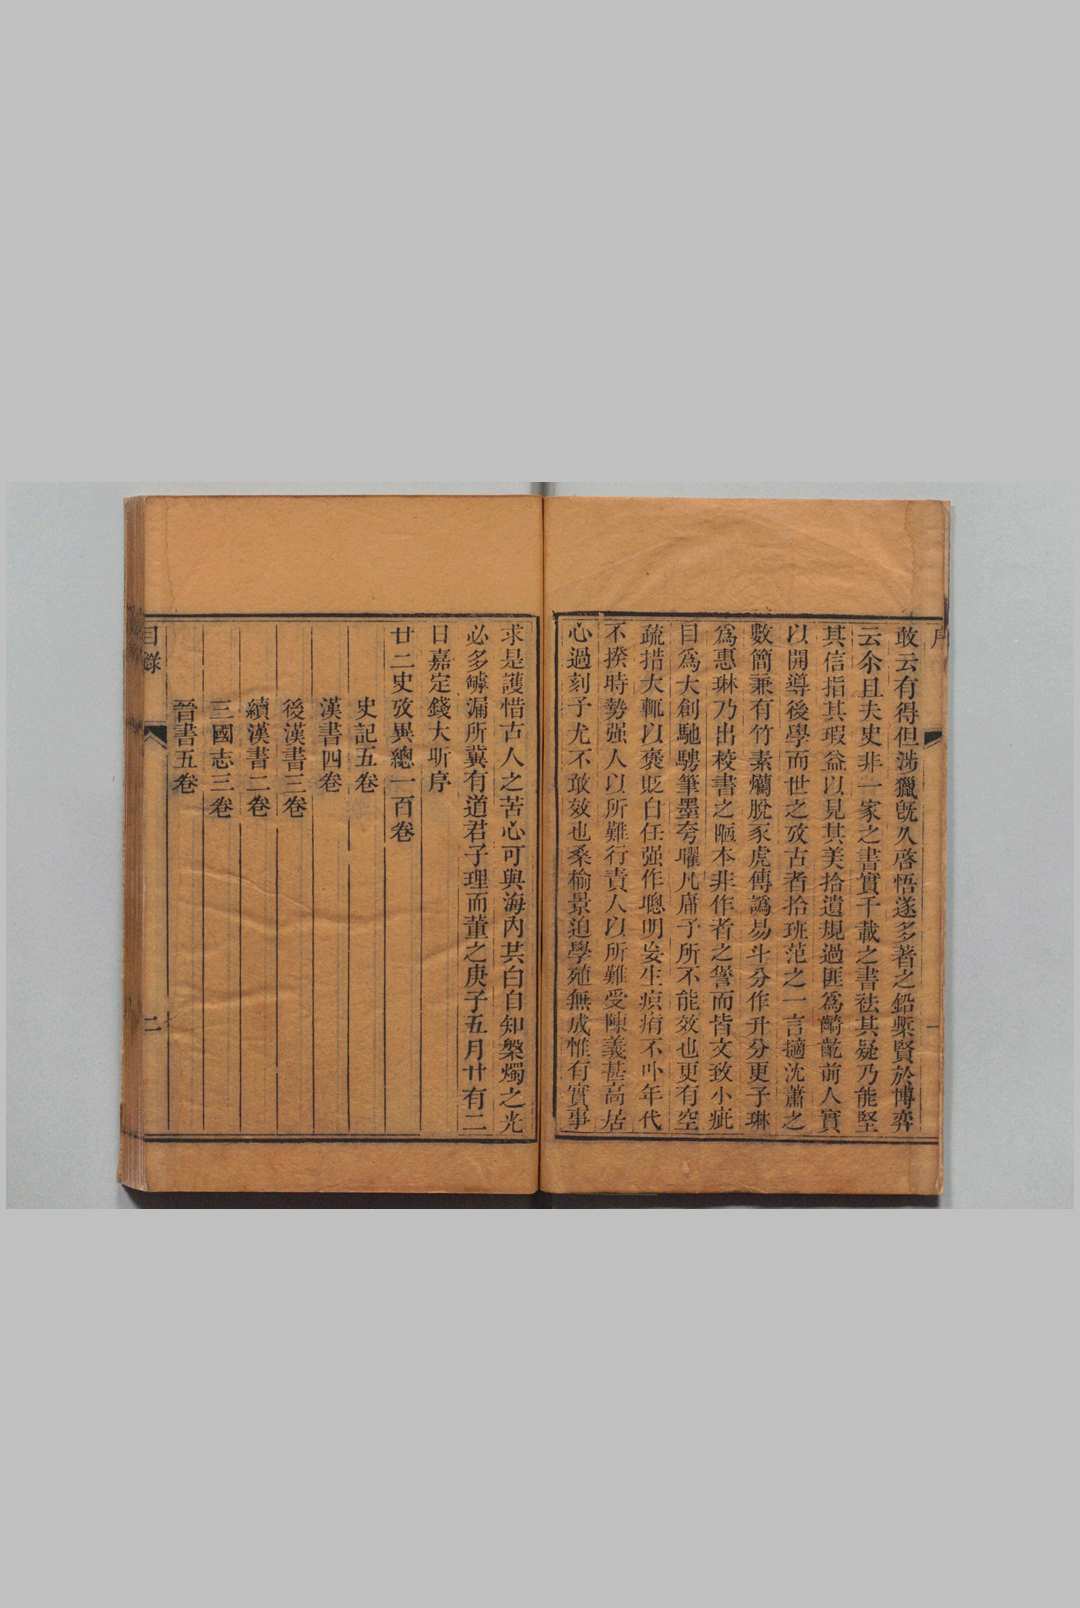 序
一
敢云有得但涉獵旣久啓悟遂多著之鉛槧賢於博弈
云尒且夫史非一家之書實千載之書祛其疑乃能堅
其信指其瑕益以見其美拾遺規過匪爲齮齕前人實
以開導後學而世之攷古者拾班范之一言擿沈蕭之
數簡兼有竹素爛脫豕虎傳譌易斗分作升分更子琳
爲惠琳乃出校書之陋本非作者之諐而皆文致小疵
目爲大創馳騁筆墨夸曜凡庸予所不能效也更有空
疏措大輒以褒貶自任强作聰明妄生疻痏不卟年代
不揆時勢强人以所難行責人以所難受陳義甚高居
心過刻予尤不敢效也桑榆景迫學殖無成惟有實事
求是護惜古人之苦心可與海內共白自知槃燭之光
必多罅漏所冀有道君子理而董之庚子五月廿有二
日嘉定錢大昕序
廿二史攷異總一百卷
史記五卷
漢書四卷
後漢書三卷
續漢書二卷
三國志三卷
晉書五卷
目錄
二